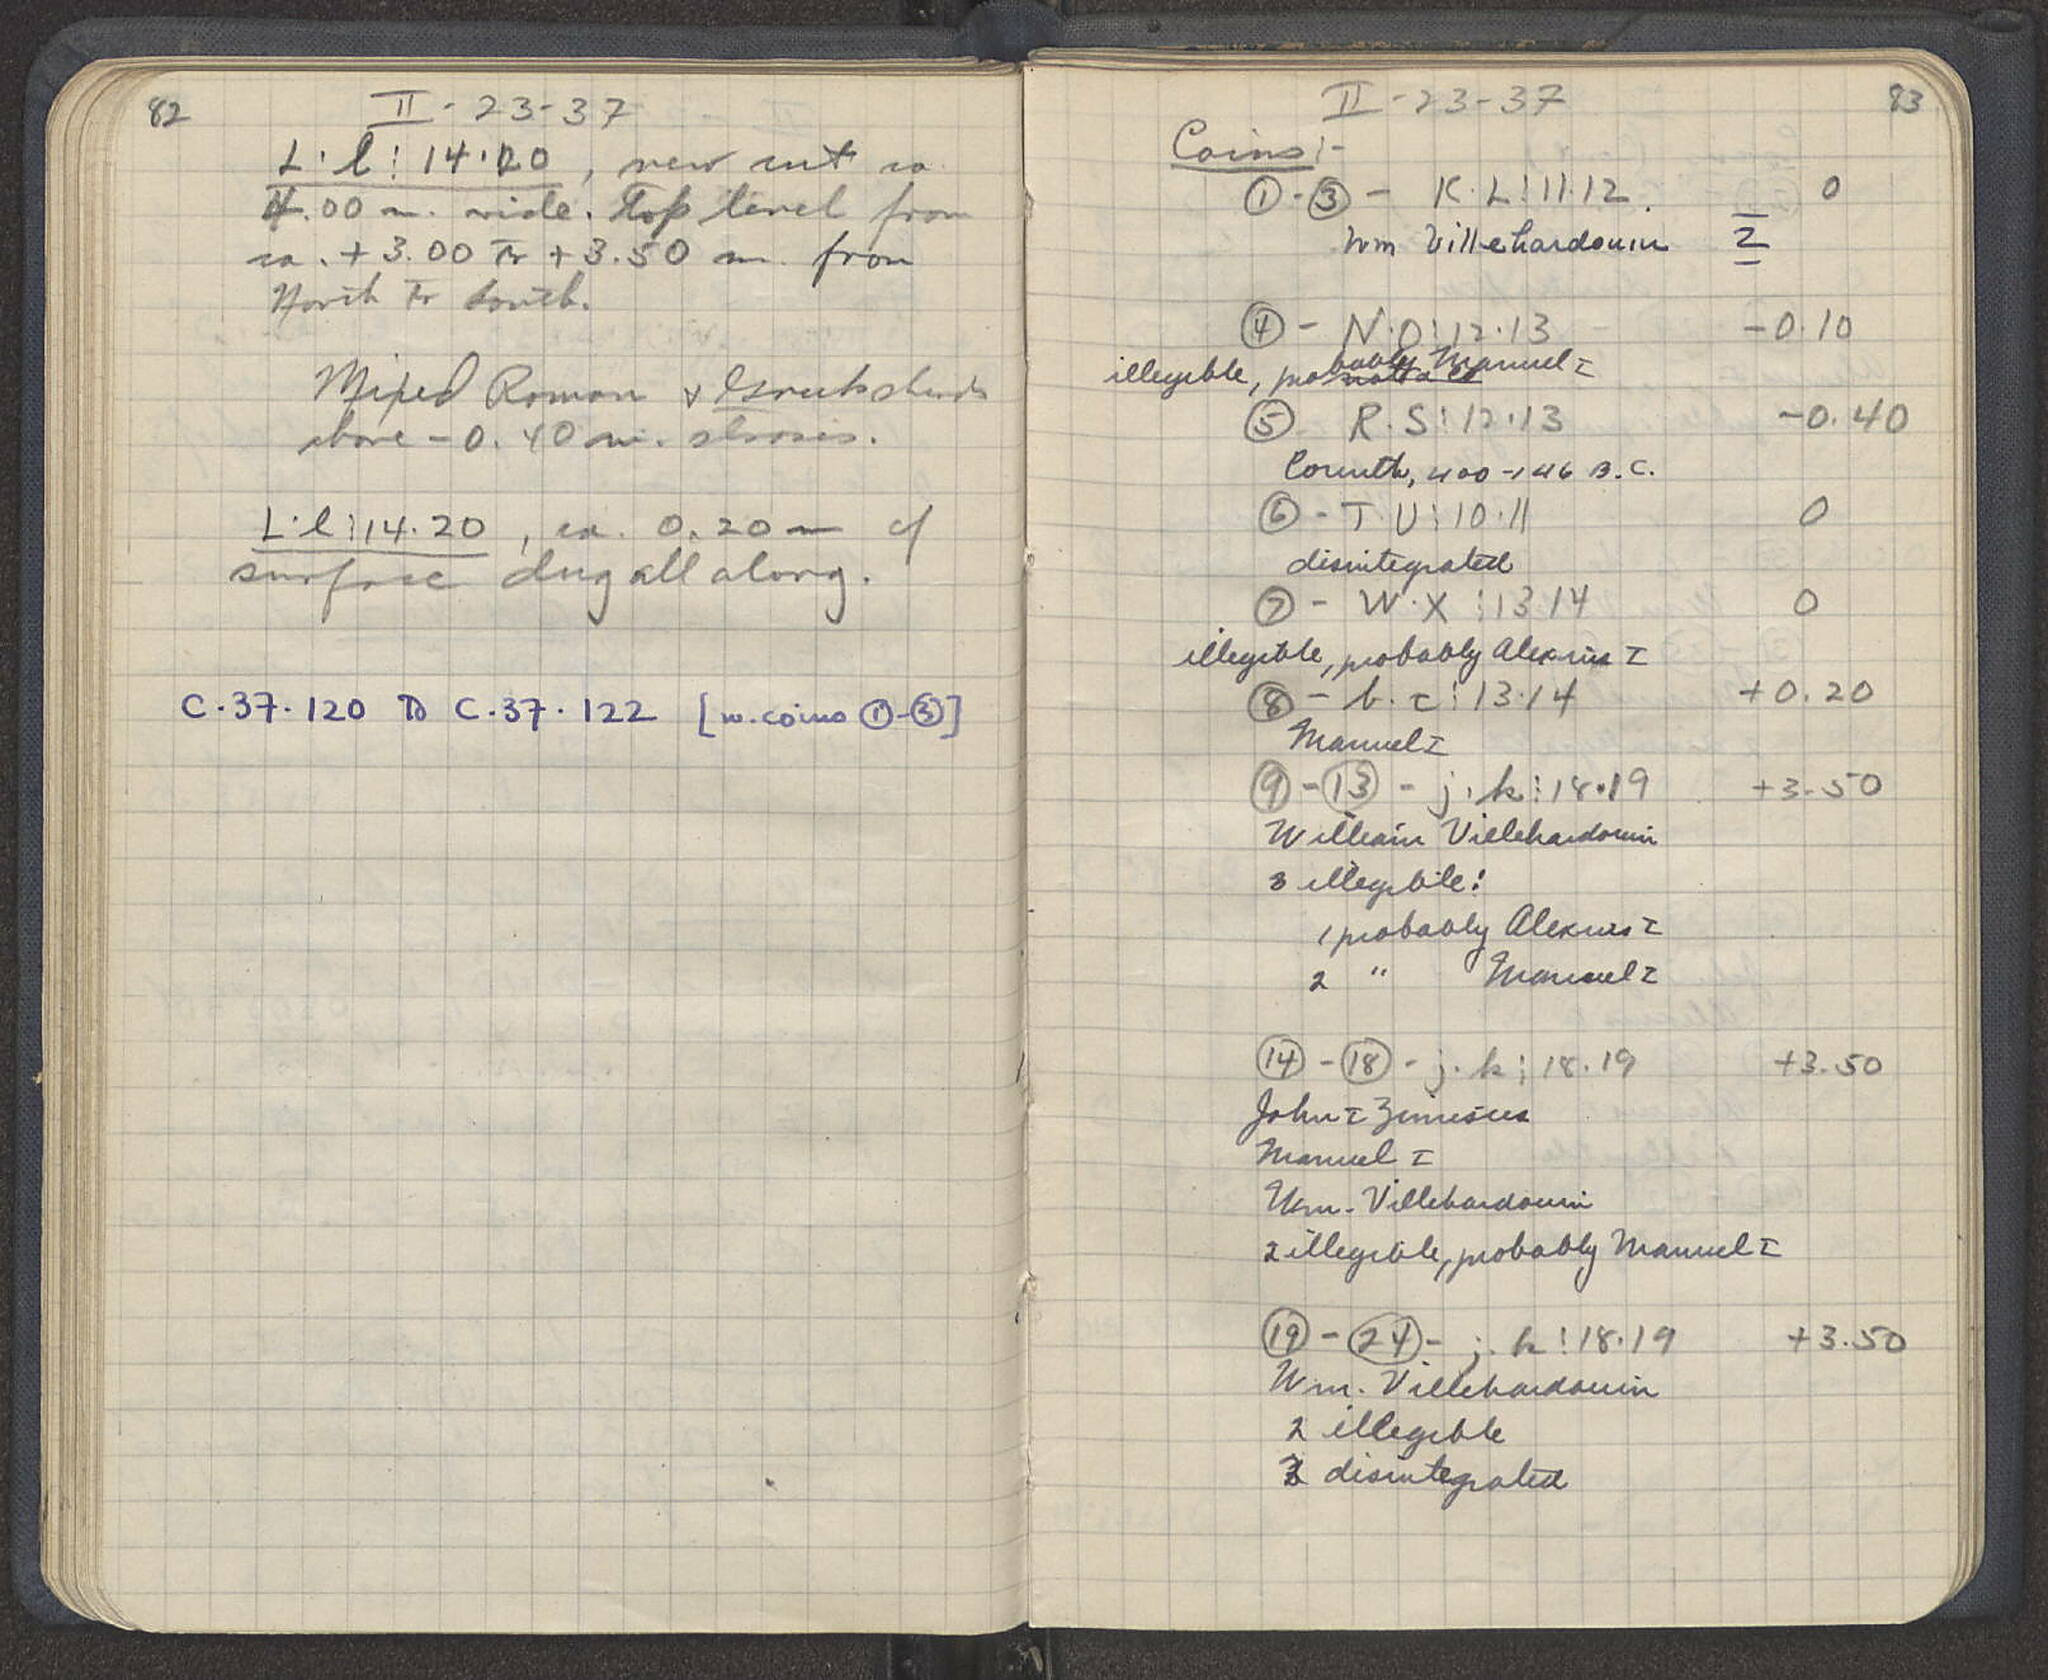 82
II - 23-37
L·l : 14·20, new cut ca.
4.00 m. wide. Top level from
ca. +3.00 to +3.50 m. from
North to South.
Mixed Roman & Greek sherds
above -0.40 m. stroses.
L·l : 14·20, ca. 0.20 m of
surface dug all along.
C·37·120 to C·37·122 [w. coins ①-③]
II - 23-37
83
Coins:-
①-③ - K·L : 11·12. 0
Wm Villehardouin I
④ - N·O : 12·13 -0.10
illegible, probably Manuel I
⑤ R·S : 12·13 -0.40
Corinth, 400-146 B.C.
⑥ - T·U : 10·11 0
disintegrated
⑦ - W·X : 13 14 0
illegible, probably Alexius I
⑧ - b·c : 13·14 +0.20
Manuel I
⑨-⑬ - j·k : 18·19 +3.50
William Villehardouin
3 illegible:
1 probably Alexius I
2 " Manuel I
⑭-⑱ - j·k : 18·19 +3.50
John I Zimisces
Manuel I
Wm. Villehardouin
2 illegible, probably Manuel I
⑲-㉔ - j·k : 18·19 +3.50
Wm. Villehardouin
2 illegible
3 disintegrated